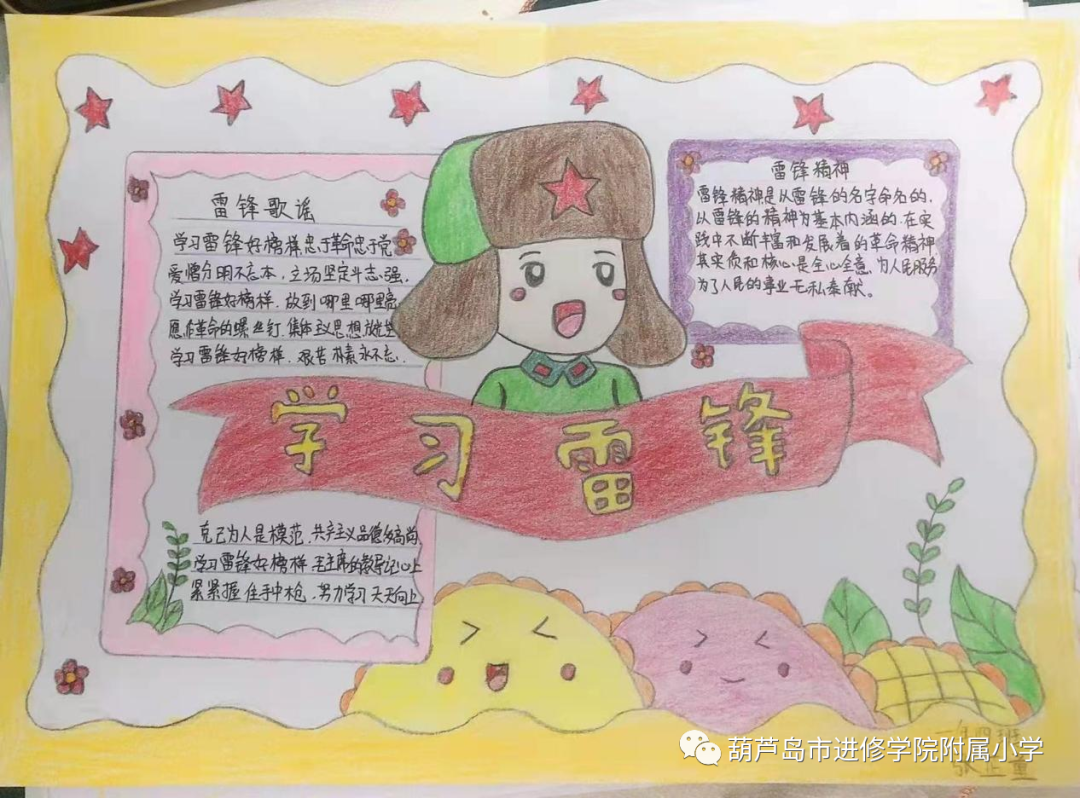 雷锋歌谣
学习雷锋好榜样,忠于革命忠于党
爱憎分明不忘本,立场坚定斗志强.
学习雷锋好榜样,放到哪里哪里亮
愿作革命的螺丝钉,集体主义思想放光
学习雷锋好榜样,艰苦朴素永不忘.
学习雷锋
克己为人是模范,共产主义品德多高尚
学习雷锋好榜样,毛主席的教导记心上
紧紧握住手中枪,努力学习天天向上
雷锋精神
雷锋精神是从雷锋的名字命名的,
以雷锋的精神为基本内涵的.在实
践中不断丰富和发展着的革命精神
其实质和核心是全心全意为人民服务
为了人民的事业无私奉献。
班
葫芦岛市进修学院附属小学